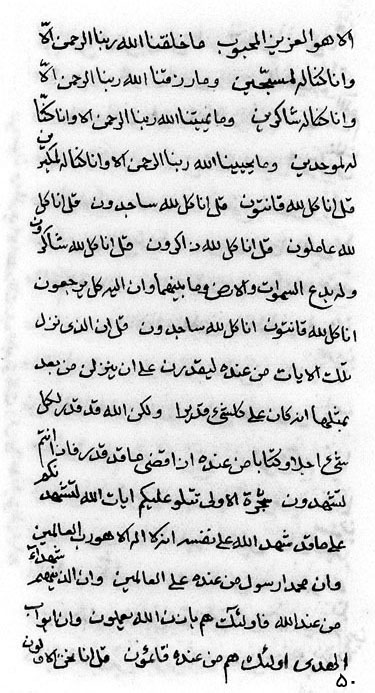 الا هو العزيز المحبوب ما خلقنا الله ربنا الرحمن الا
وانا كنا له لمسبحين وما رزقنا الله ربنا الرحمن الا
وانا كنا له شاكرين وما يميتنا الله ربنا الرحمن الا وانا كنا
له لموحدين وما يحيينا الله ربنا الرحمن الا وانا كنا له لمكبرين
قل انا كل لله قانتون قل انا كل لله ساجدون قل انا كل
لله عاملون قل انا كل لله ذاكرون قل انا كل لله شاكرون
وله بدع السموات والارض وما بينهما وان اليه كل يرجعون
انا كل لله قانتون انا كل لله ساجدون قل ان الذى نزل
تلك الايات من عنده ليقدرن على ان ينزلن من بعد
بمثلها انه كان على كلشئ قديرا ولكن الله قد قدر لكل
شئ اجلا وكتابا من عنده ان اقضى ما قد قدر فاذا انتم
لتشهدون شجرة الاولى تتلو عليكم ايات الله لتشهدنكم
على ما قد شهد الله على نفسه انه لا اله الا هو رب العالمين
وان محمد ارسول من عنده على العالمين وان الذينهم شهداء
من عند الله فاولئك هم باذن الله يعملون وان ابواب
الهدى اولئك هم من عنده قائمون قل انا نحن لاقولون
٥٠